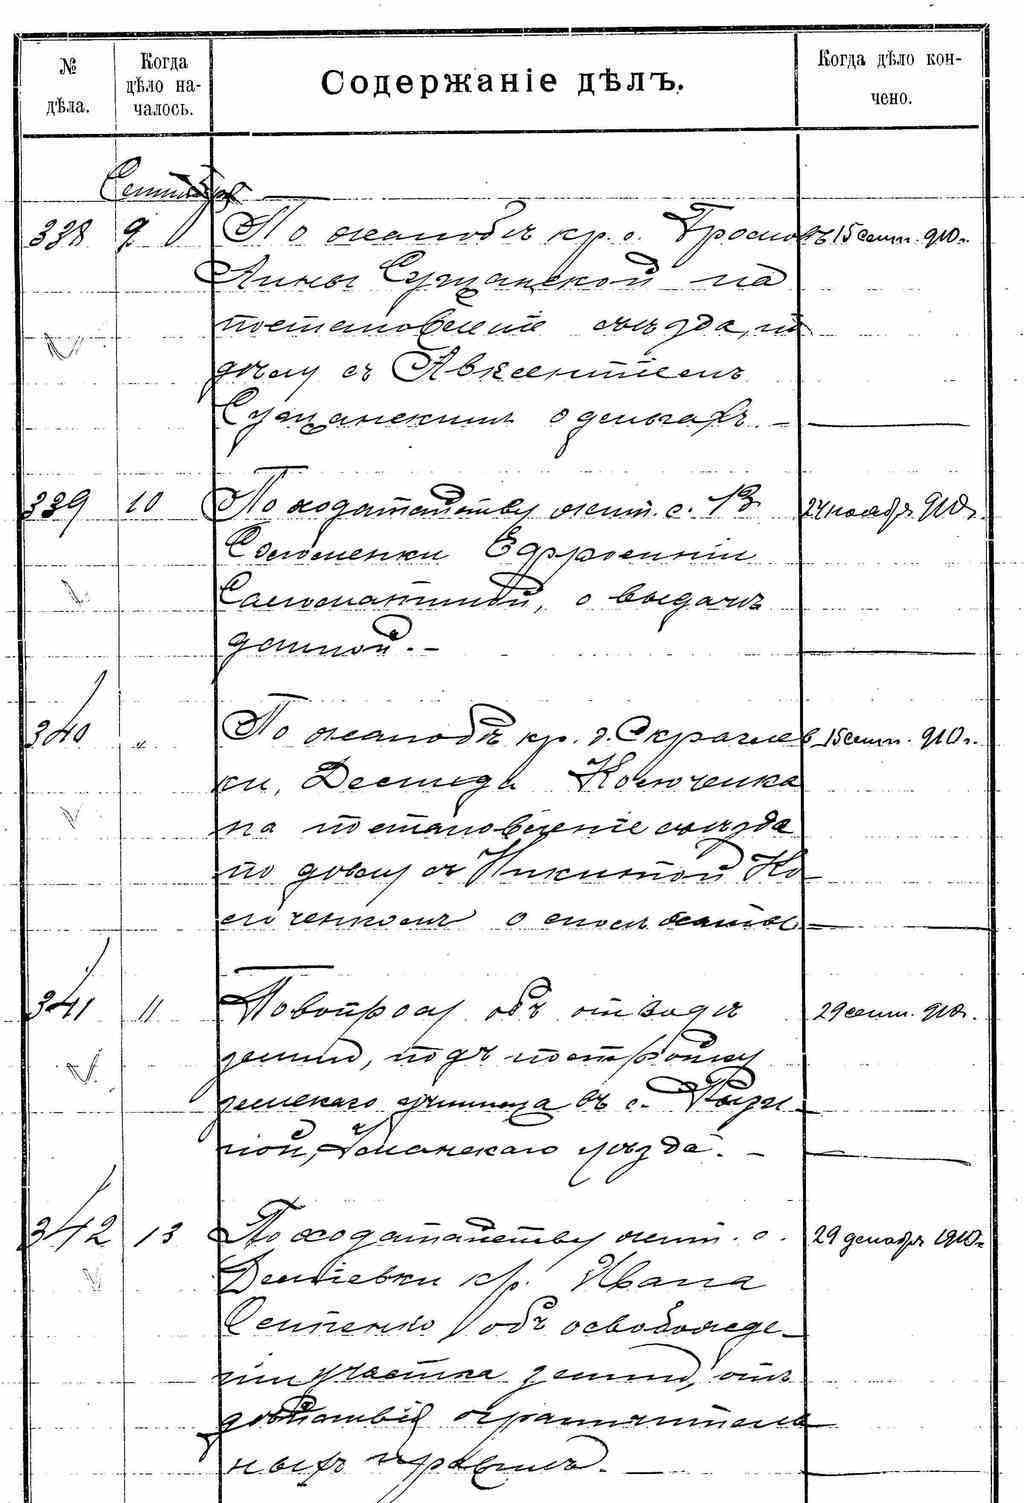 № дѣла.
Когда дѣло началось.
Содержаніе дѣлъ.
Когда дѣло кончено.
Сентябрь
338 9 По жалобѣ кр. с. Громовъ 15 сент. 910 г.
Анны Сущанской на
постановленіе съѣзда, по
дѣлу съ Авксентіемъ
Сущанскимъ о деньгахъ. –
339 10 По ходатайству жит. с. В
Соломенки Ефросиніи
о выдачѣ
данной. –
340 " По жалобѣ кр. д. 15 сент. 910 г.
ки, Демида
на постановленіе съѣзда
по дѣлу съ Никитой Ко
341 11 По вопросу объ отводѣ 29 сент. 910 г.
земли, подъ постройку
земскаго училища въ с.
Уманскаго уѣзда. –
342 13 По ходатайству жит. с. 29 декабря 1910 г.
кр. Ивана
объ освобожде-
ніи участка земли, отъ
дѣйствія ограничитель
ныхъ правилъ. –